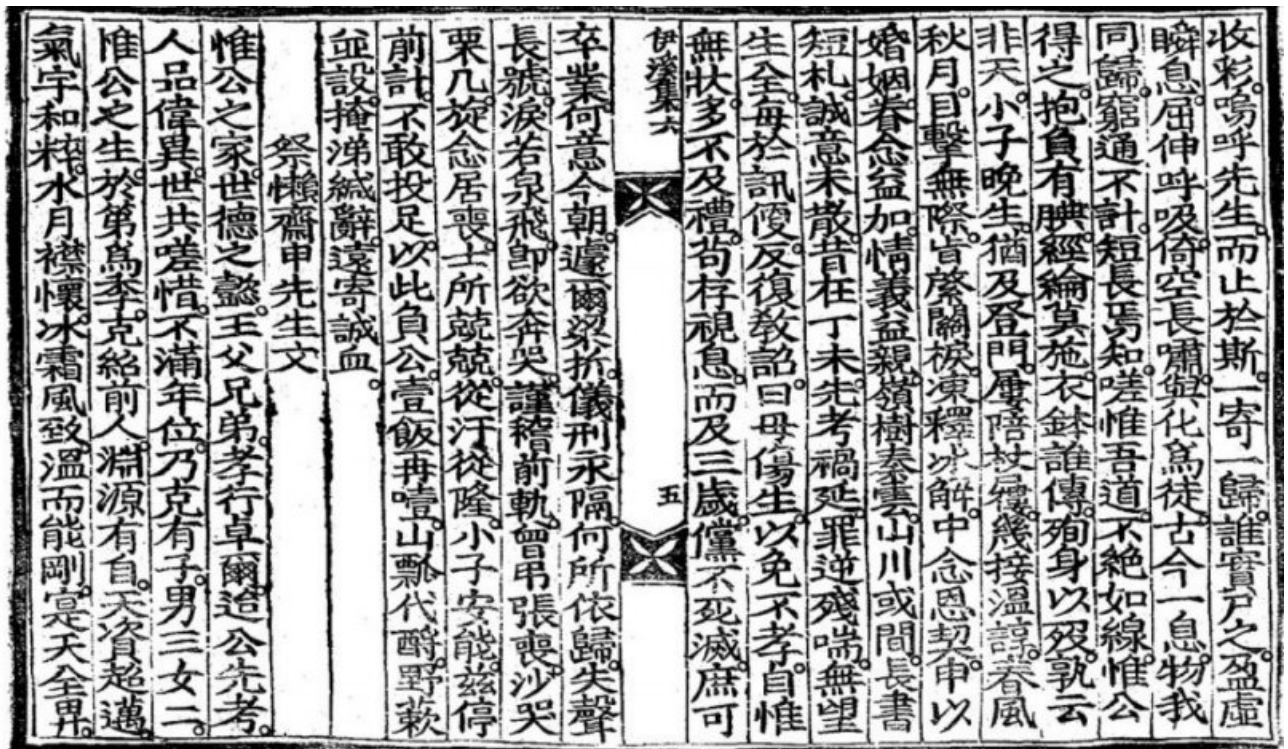 收彩。嗚呼先生。而止於斯。一寄一歸。誰實尸之。盈虛
瞬息。屈伸呼吸。倚空長嘯。與化爲徒。古今一息。物我
同歸。窮通不計。短長焉知。嗟惟吾道。不絶如線。惟公
得之。抱負有腆。經綸莫施。衣鉢誰傳。殉身以歿。孰云
非天。小子晩生。猶及登門。屢陪杖屨。幾接溫諄。春風
秋月。目擊無際。肯綮關棙。凍釋氷解。中念恩契。申以
婚姻。眷念益加。情義益親。嶺樹秦雲。山川或間。長書
短札。誠意未散。昔在丁未。先考禍延。罪逆殘喘。無望
生全。每於訊便。反復敎詔。曰毋傷生。以免不孝。自惟
無狀。多不及禮。苟存視息。而及三歲。儻不死滅。庶可
伊溪集六
五
卒業。何意今朝。遽爾梁折。儀刑永隔。何所依歸。失聲
長號。淚若泉飛。卽欲奔哭。謹稽前軌。曾弔張喪。沙哭
栗几。旋念居喪。士所兢兢。從汙從隆。小子安能。玆停
前計。不敢投足。以此負公。壹飯再噎。山瓢代酹。野蔌
並設。掩涕緘辭。遠寄誠血。
祭懶齋申先生文
惟公之家。世德之懿。王父兄弟。孝行卓爾。迨公先考。
人品偉異。世共嗟惜。不滿年位。乃克有子。男三女二。
惟公之生。於弟爲季。克紹前人。淵源有自。天資超邁。
氣宇和粹。水月襟懷。冰霜風致。溫而能剛。寔天全畀。